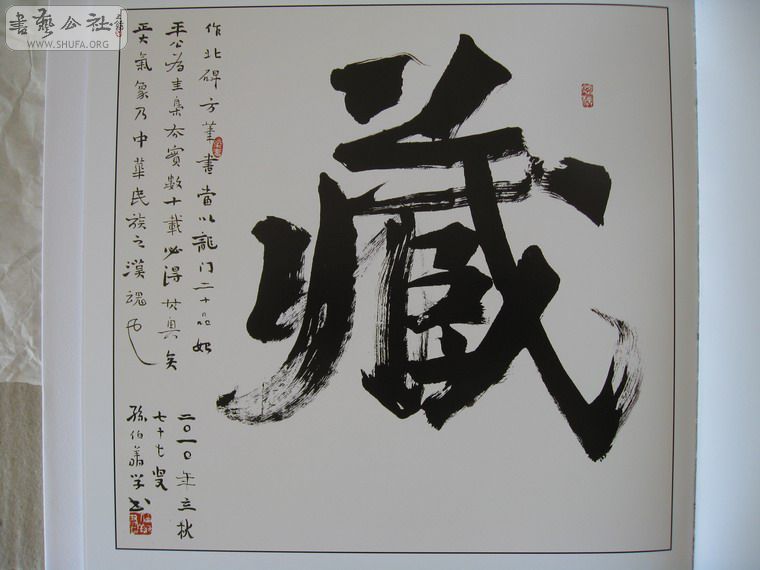 書藝公社
WWW.SHUFA.ORG
藏
作北碑方筆書當以龍门二十品始
平公为圭臬夯實数十載必得其奥矣
正大氣象乃中華民族之漢魂也
二〇一〇年立秋
七十七叟
孫伯翔学书